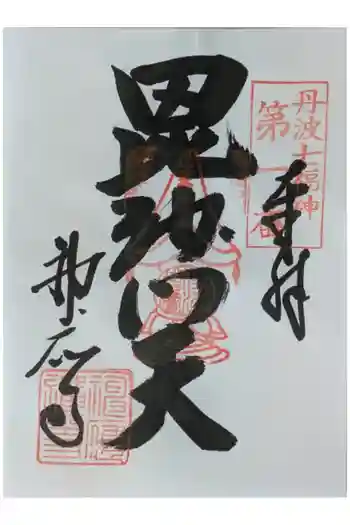 丹波七福神
第一番
奉拝
毘沙門天
神応寺